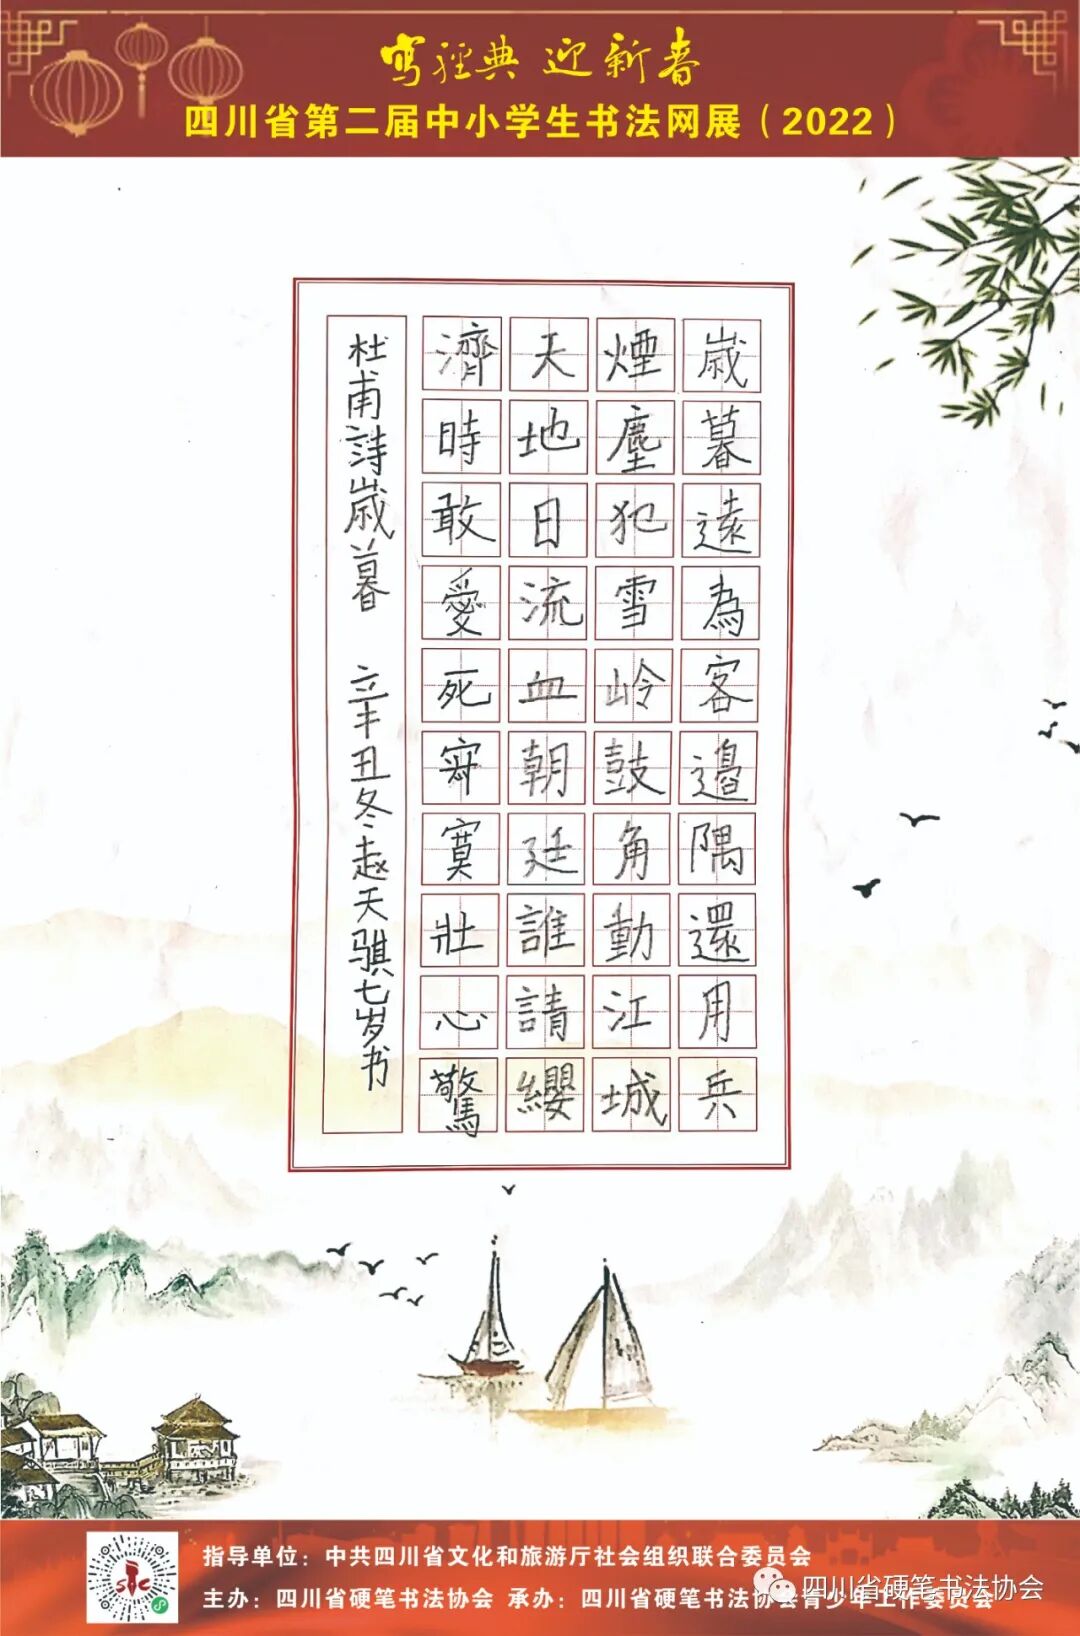 写经典 迎新春
四川省第二届中小学生书法网展（2022）
歲暮遠為客邊隅還用兵
煙塵犯雪岭鼓角動江城
天地日流血朝廷誰請纓
濟時敢愛死寂寞壯心驚
杜甫詩歲暮 辛丑冬赵天骐七岁书
指导单位：中共四川省文化和旅游厅社会组织联合委员会
主办：四川省硬笔书法协会 承办：四川省硬笔书法协会青少年工作委员会
四川省硬笔书法协会